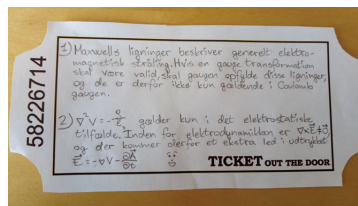 58226714
1) Maxwells ligninger beskriver generelt elektro-
magnetisk stråling. Hvis en gauge transformation
skal være valid, skal gaugen opfylde disse ligninger,
og de er derfor ikke kun gældende i Coulomb
gaugen.
2) ∇²V = -ρ/ε₀ gælder kun i det elektrostatiske
tilfælde. Inden for elektrodynamikken er ∇×E⃗≠0⃗,
og der kommer derfor et ekstra led i udtrykket
E⃗ = -∇V - ∂A⃗/∂t
TICKET OUT THE DOOR